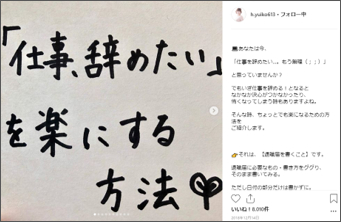 「仕事、辞めたい」
を楽にする
方法
フォロー中
あなたは今、
「仕事を辞めたい、、もう無理（ ; ; ）」
と思っていませんか？
でもいざ仕事を辞める！となると
なかなか決心がつかなかったり、
怖くなってしまう時もありますよね。
そんな時、ちょっとでも楽になるための方
法を
ご紹介します。
それは、【退職届を書くこと】です。
退職届に必要なもの・書き方をググり、
そのまま書いてみる。
ただし日付の部分だけは書かずに。
いいね！8,010件